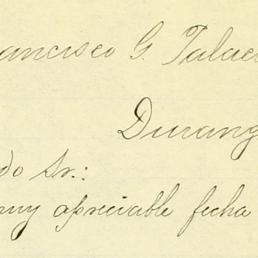 ancisco G. Palac
Durang
do Sr.:
muy apreciable fecha